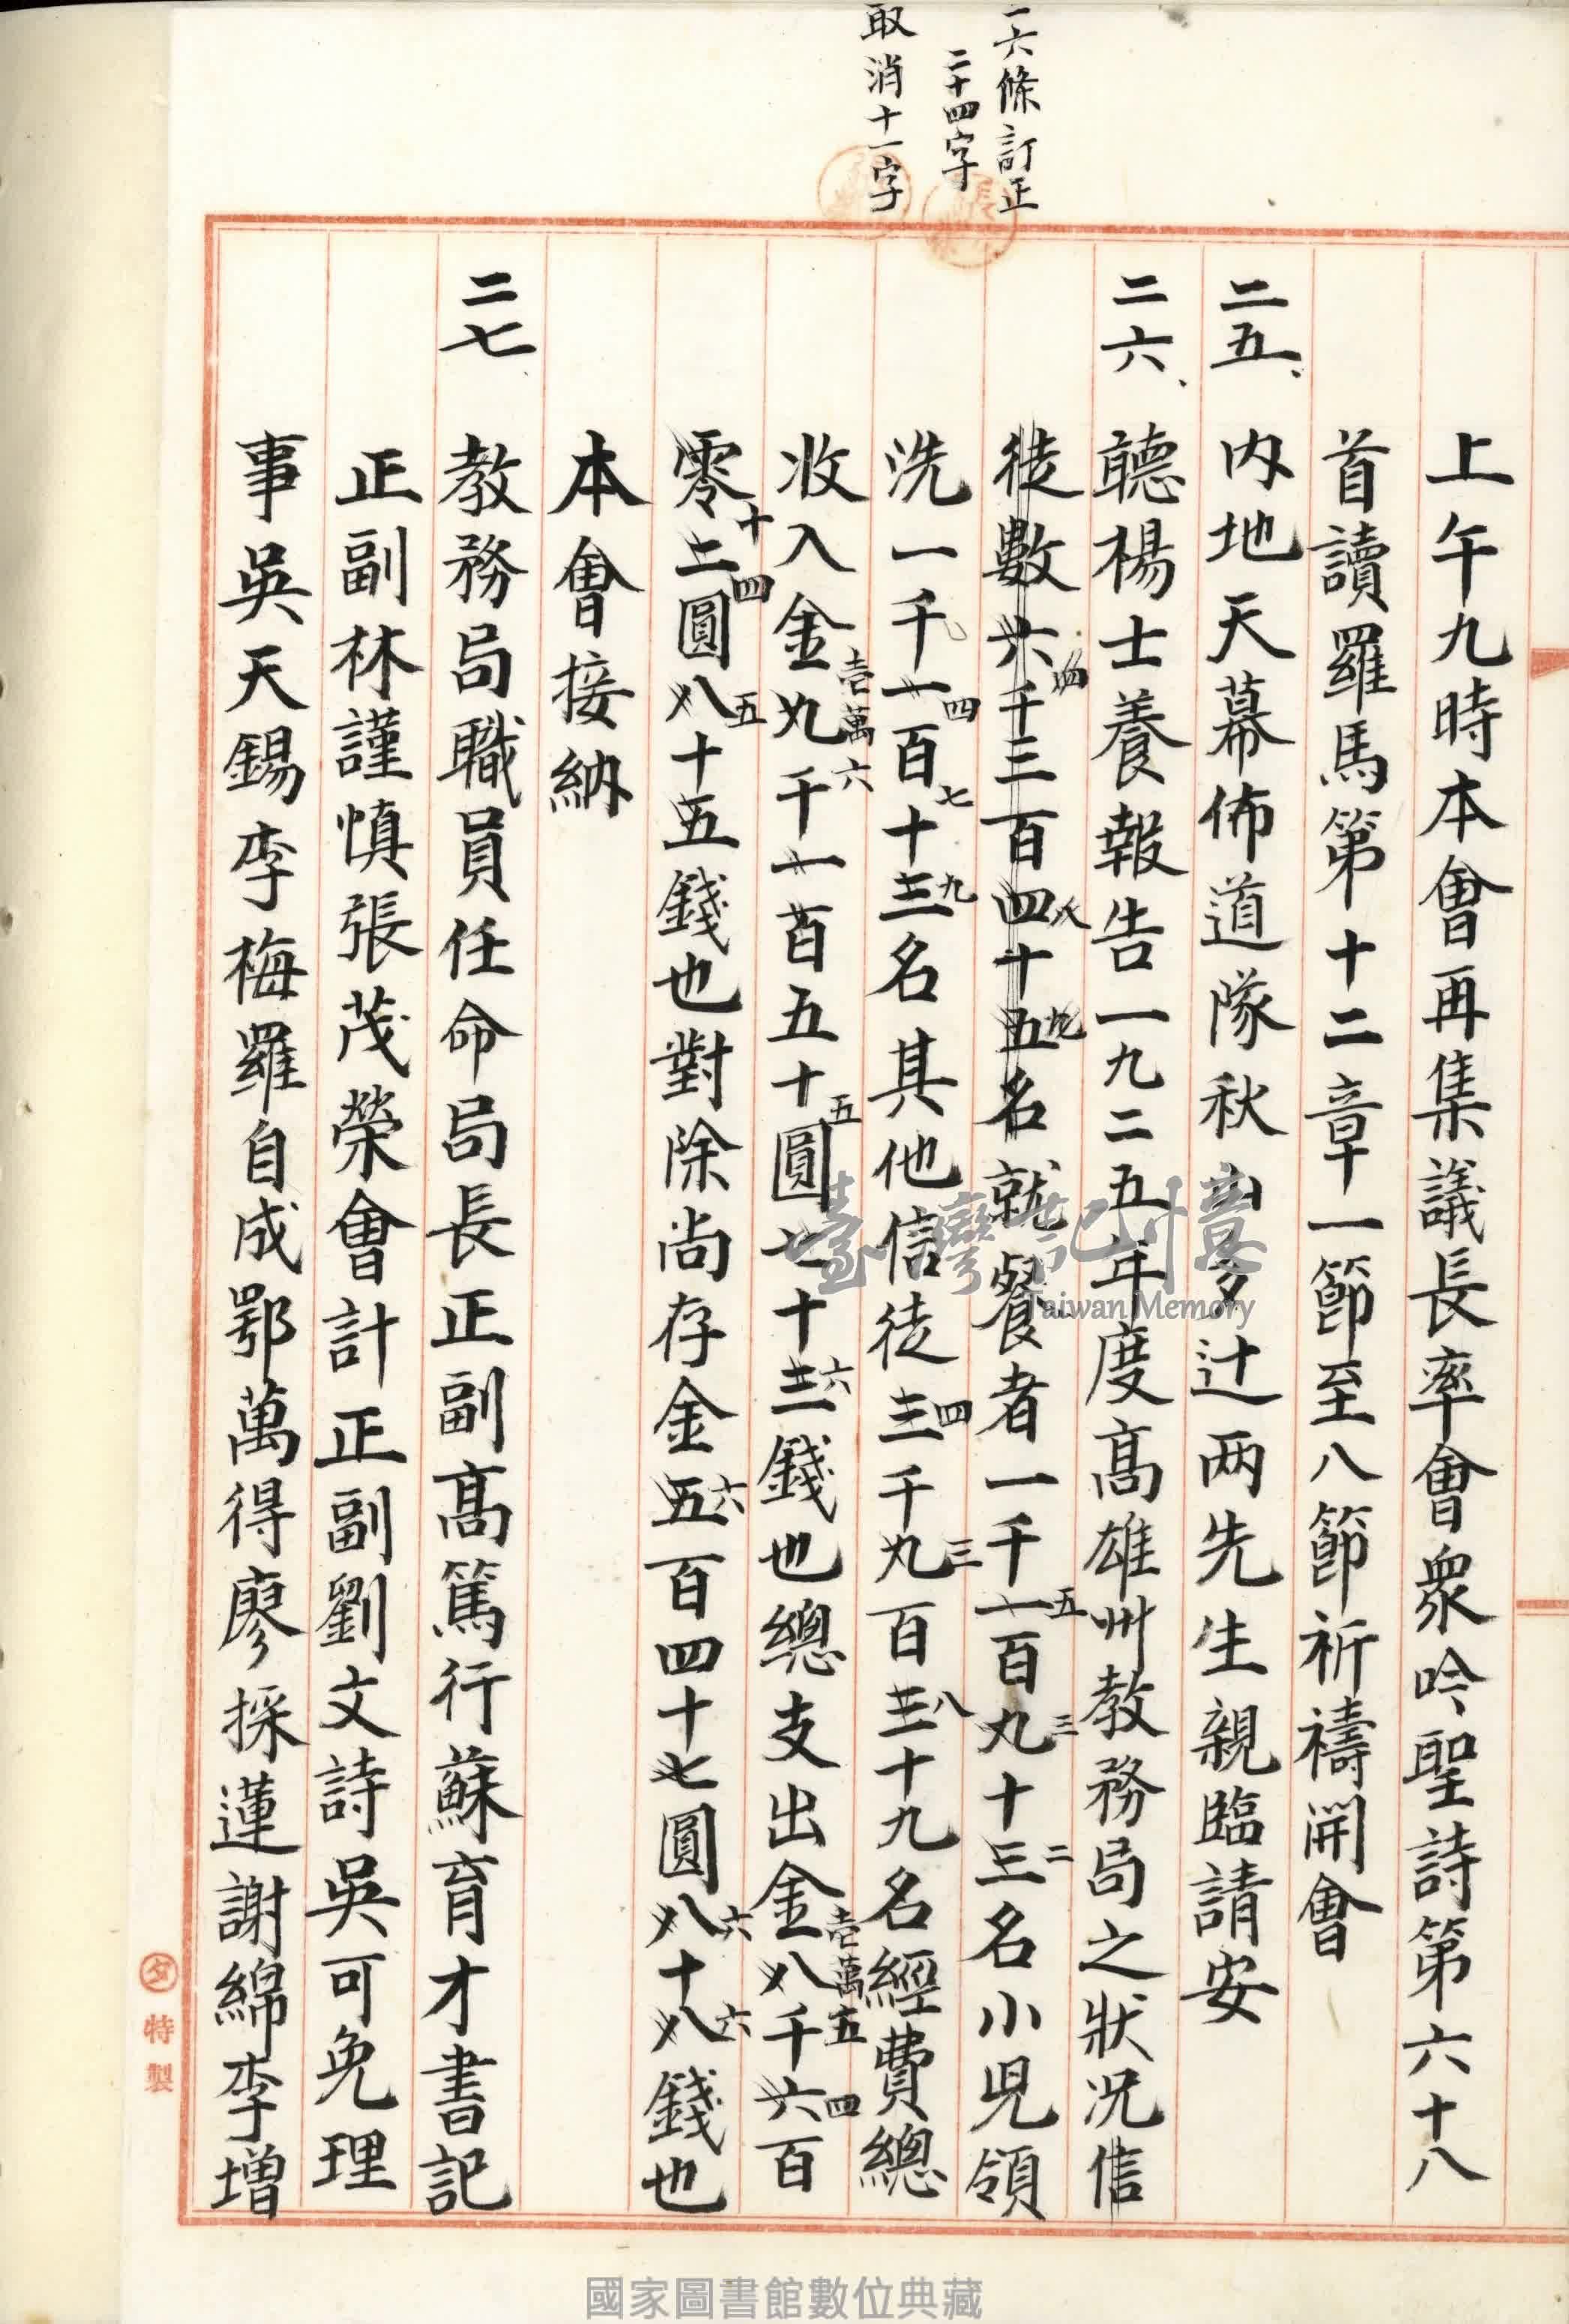 二六條訂正
二十四字
取消十一字
上午九時本會再集議長率會眾吟聖詩第六十八
首讀羅馬第十二章一節至八節祈禱開會
二五、內地天幕佈道隊秋山多辻兩先生親臨請安
二六、聽楊士養報告一九二五年度高雄州教務局之狀況信
徒數六千三百四十五名就餐者一千一百九十三名小兒領
四
八
九
五
三
二
洗一千一百十三名其他信徒三千九百三十九名經費總
四
七
九
四
三
八
收入金九千一百五十圓七十三錢也總支出金八千六百
壱萬六
五
六
壱萬五
四
零二圓八十五錢也對除尚存金五百四十七圓八十八錢也
十四
五
六
六
六
本會接納
二七、教務局職員任命局長正副高篤行蘇育才書記
正副林謹慎張茂榮會計正副劉文詩吳可免理
事吳天錫李梅羅自成鄂萬得廖採蓮謝綿李增
特製
臺灣記憶
Taiwan Memory
國家圖書館數位典藏